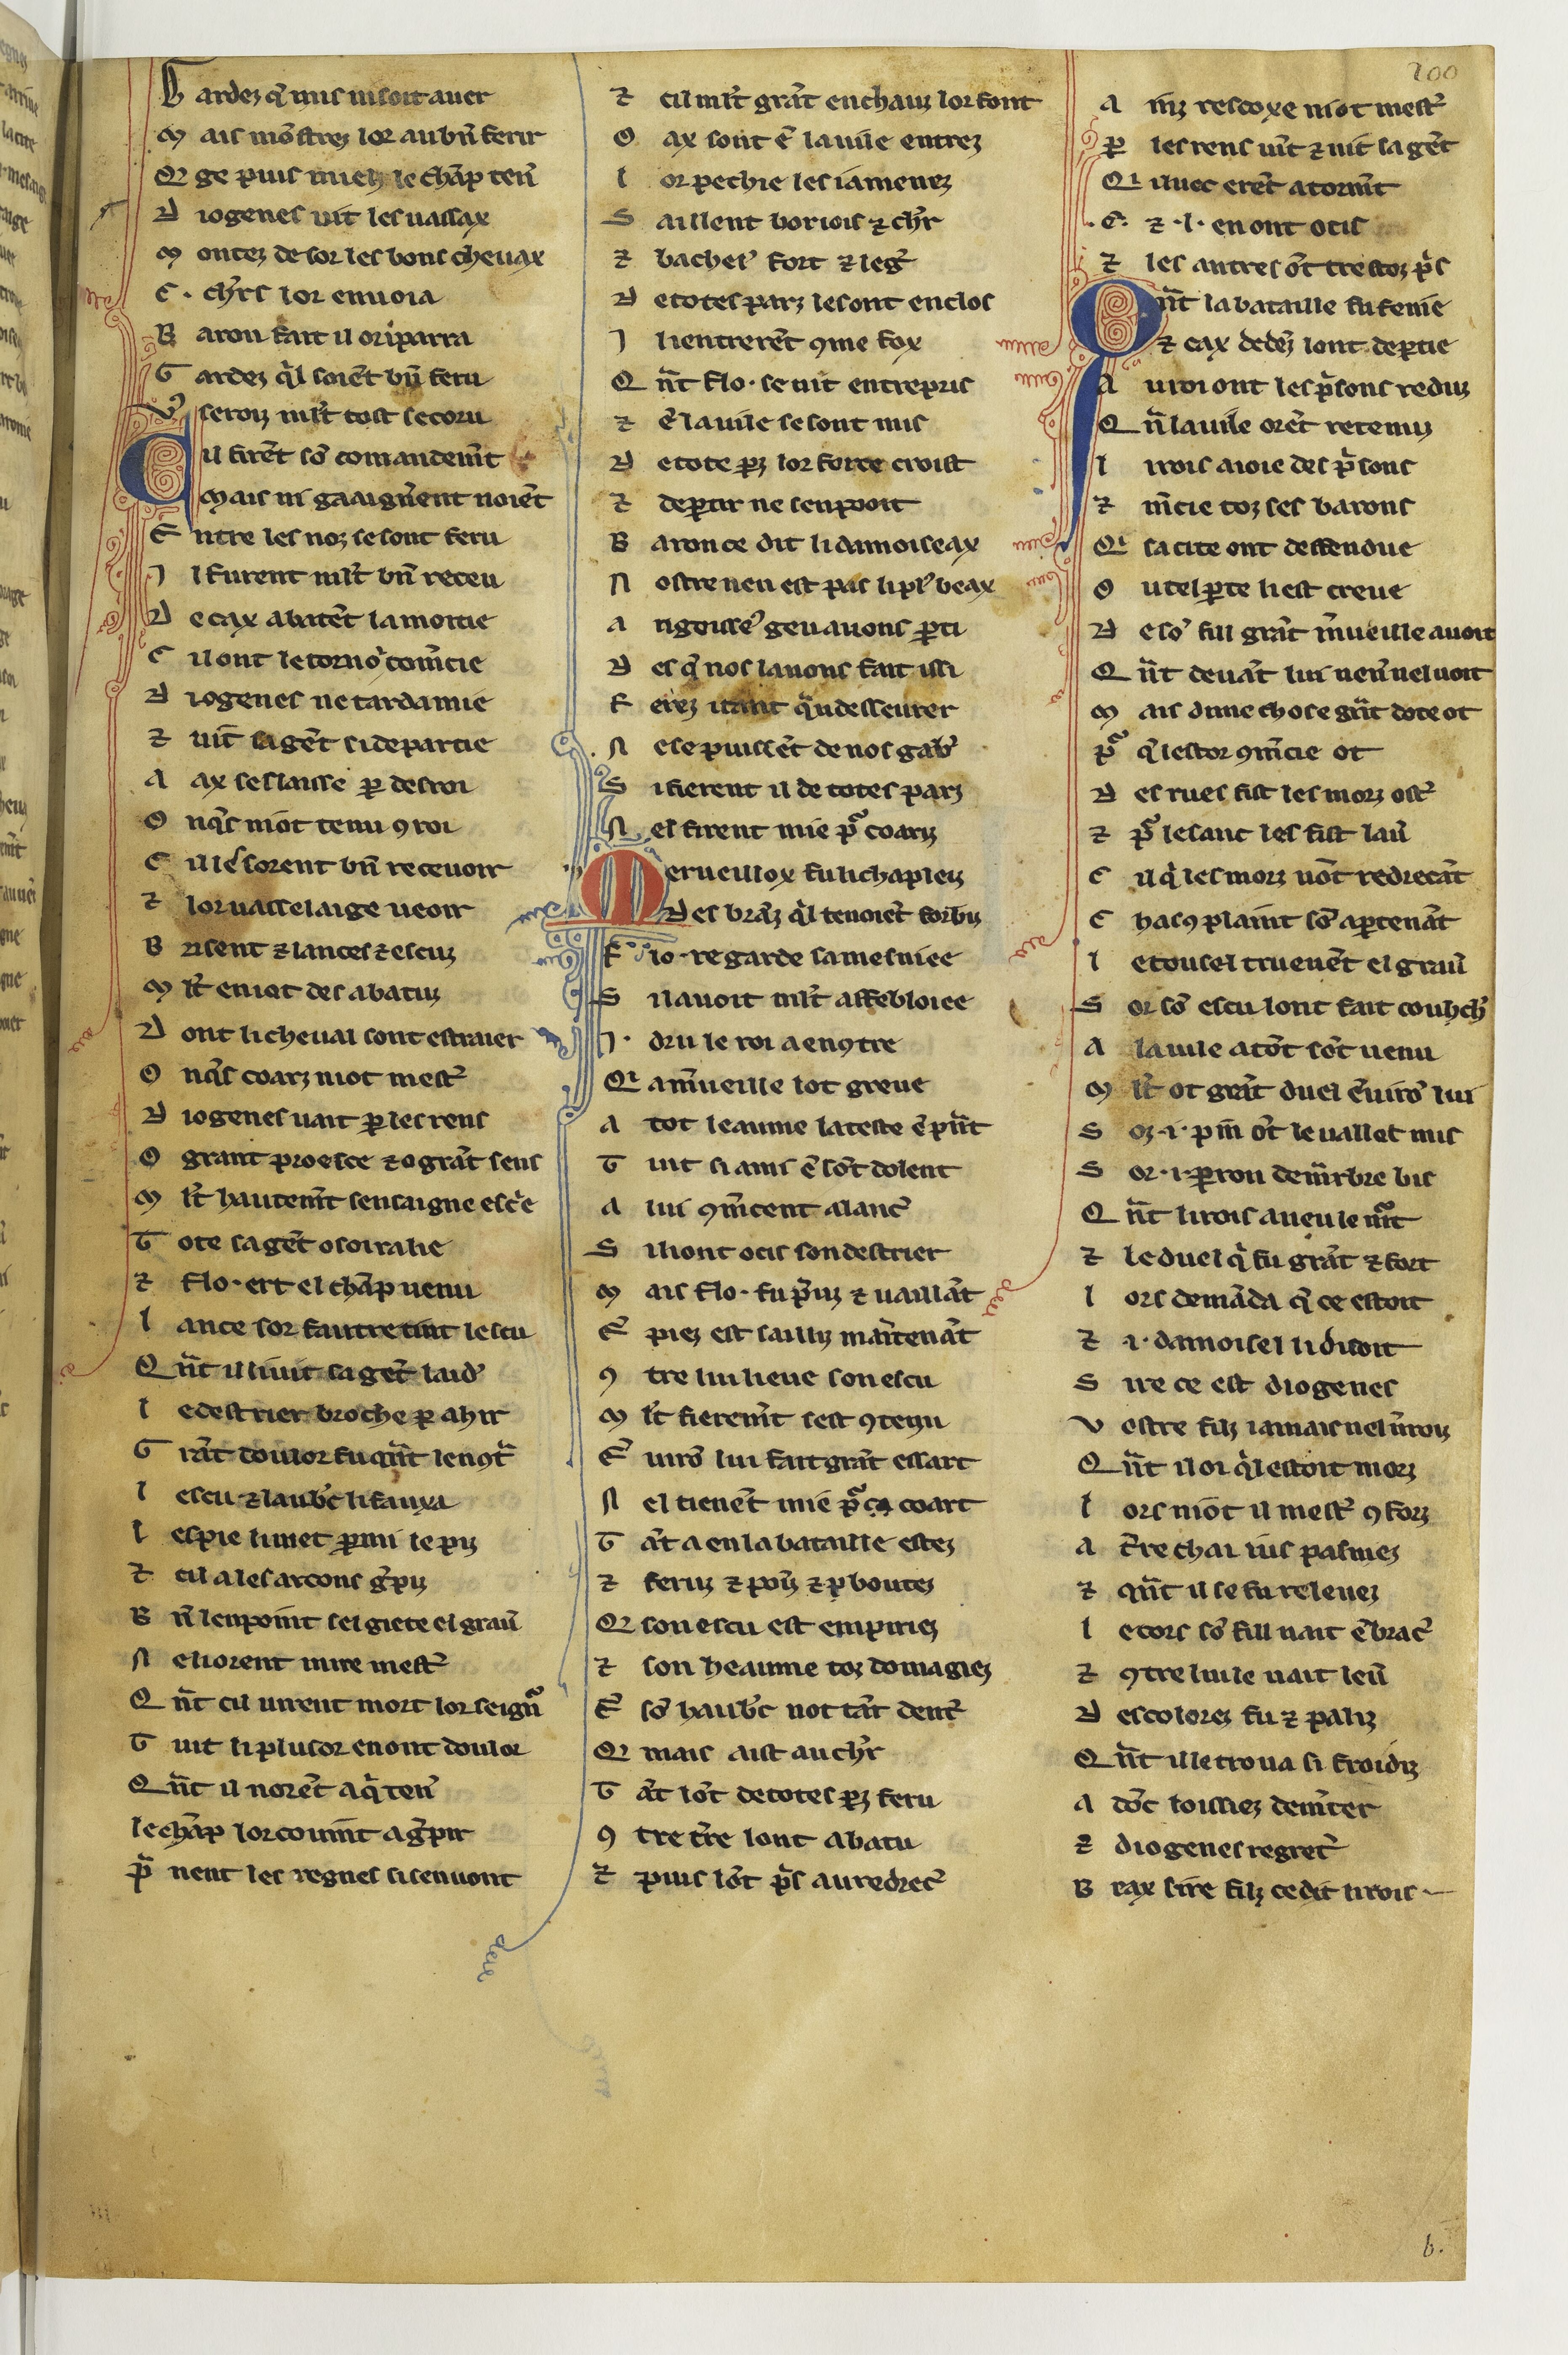 200
G ardez q̃ nus ni soit auer
M ais mõstrez lor au bñ ferir
Qi ge puis mielz le chãp teñ
D iogenes uit les uassax
M ontez desor les bons cheuax
C . chr̃s lor enuoia
B aron fait il or i parra
G ardez q̃l soiẽt bñ feru
V' seroiz ml't tost secoru
C il firẽt sõ comandem̃t
Mais ni gaaignẽrent noiẽt
E ntre les noz se sont feru
J l furent ml't bñ receu
D e cax abatẽt la moitie
C il ont le tornoi com̃cie
D iogenes ne tarda mie
z uit sa gẽt si departie
A ax seslaisse p desroi
O nq̃s niot tenu 9roi
C il les sorent bñ receuoir
z lor uasselaige ueoir
B risent z lances z escuz
M l't en iot des abatuz
D ont li cheual sont estraier
O nq̃s coarz niot mest'
D iogenes uait p les rens
O grant proesce z o grãt sens
M l't hautem̃t sensaigne escͥe
T ote sa gẽt o soi ralie
z flo· ert el chãp uenu
l ance sor fautre tint lescu
Q ñt il li uit sa gẽt laid'
l edestrier broche p ahir
G rãt doulor fu q̃nt len9tͣ
l escu z laub'c li fauxa
l espie li met pmi le piz
z cil a les arcons g̃piz
B ñ lenpoint sel giete el grau'
N eli orent mire mest'
Q ñt cil uirent mort lor seign̄
T uit li plusor en ont doulor
Q ñt il norẽt a q̃ teñ
le chãp lor couint a g̃pir
pͣ nent les regnes si senuont
z cil ml't grãt enchauz lor font
O ax sont ẽ la uile entrez
l or pechie les i a menez
S aillent boriois z chr̃
z bachel' fort z leg̃
D e totes parz les ont enclos
J lientrerẽt 9me fox
Q ñt flo· se uit entrepris
z ẽ la uile se sont mis
D e tote pz lor force croist
z deptir ne sen poit
B aron ce dit li damoiseax
N ostre ieu est pas li pl' beax
A ngoisse' geu auons pti
D es q̃ nos lauons fait issi
F erez itant q̃u desseurer
N ese puissẽt de nos gab'
S i fierent il de totes parz
N el firent mie pͣ coarz
M erueillox fu li chapleiz
Des brãz q̃l tenoiẽt forbiz
F lo· regarde sa mesniee
S il auoit ml't affebloiee
J· dru le roi a en9tre
Qi a m̃ueille lot greue
A tot leaume la teste ẽ pr̃nt
T uit si ami ẽ sõt dolent
A lui 9m̃cent a lanc'
S ili ont ocis son destrier
M ais flo· fu p̃uz z uaillãt
E' piez est sailliz maĩtenãt
9 tre lui lieue son escu
M l't fierem̃t sest 9tenu
E' uirõ lui fait grãt essart
N el tienẽt mie pͣ coart
T ãt a en la bataille estez
z feruz z poĩz z pboutez
Qi son escu est empiriez
z son heaume toz domagiez
E' sõ haub'c not tãt dent'
Qi mais aist au chr̃
T ãt lõt de totes pz feru
9 tre tr̃e lont abatu
z puis lõt p̃s au redrec'
A niz rescoxe niot mest'
P les rens uiẽt z uit sa gẽt
Qi iluec erẽt a tornm̃t
·C· z ·l· en ont ocis
z les autres õt trestoz p̃s
Q ñt la bataille fu fenie
z cax dedẽz sont deptie
A u roi ont les p̃sons reduz
Q ñ la uile orẽt retenuz
l i rois a ioie des p̃sons
z m̃cie toz ses barons
Qi sa cite ont deffendue
O utel pte li est creue
D e sõ fill grãt m̃ueille auoit
Q ñt deuãt lui neñ nel uoit
M ais dune chose grãt dote ot
pͣ q̃ lestor 9m̃cie ot
D es rues fist les morz ost'
z pͣ le sanc les fist lau'
C il q̃ les morz uõt redrecãt
C has9 plaint sõ aptenãt
l etousel truẽuẽt el grau'
S or sõ escu lont fait couchi'
A la uile a tõt sõt uenu
M l't ot grãt duel ẽuirõ lui
S oz ·i· pin õt le uallet mis
S or ·i· perron de m̃rbre bis
Q ñt li rois a ueu le m̃t
z le duel q̃ fu grãt z fort
l ors demãda q̃ ce estoit
z ·i· damoisel li disoit
S ire ce est diogenes
V ostre filz iamais nel ũroiz
Q ñt il oi q̃l estoit morz
l ors niot il mest' 9forz
A tr̃e chai ius pasmez
z q̃nt il se fu releuez
l e cors sõ fill uait ẽbrac'
z 9tre lui le uait leũ
D escolorez fu z paliz
Q ñt ille troua si froidiz
A dõc loissiez dem̃ter
z diogenes regret'
B iax sire filz ce dit li rois
b.